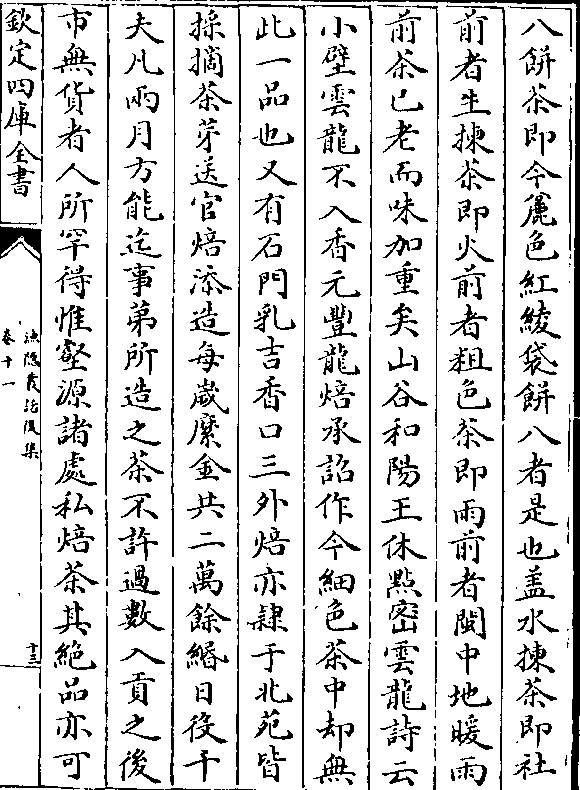 八餅茶即今麄色紅綾袋餅八者是也盖水揀茶即社
前者生揀茶即火前者粗色茶即雨前者閩中地暖雨
前茶已老而味加重矣山谷和陽王休點密雲龍詩云
小璧雲龍不入香元豐龍焙承詔作今細色茶中却無
此一品也又有石門乳吉香口三外焙亦隸于北苑皆
採摘茶芽送官焙添造每嵗縻金共二萬餘緡日役千
夫凡兩月方能迄事第所造之茶不許過數入貢之後
市無貨者人所罕得惟壑源諸處私焙茶其絶品亦可
欽定四庫全書
漁隠叢話後集
卷十一
十三